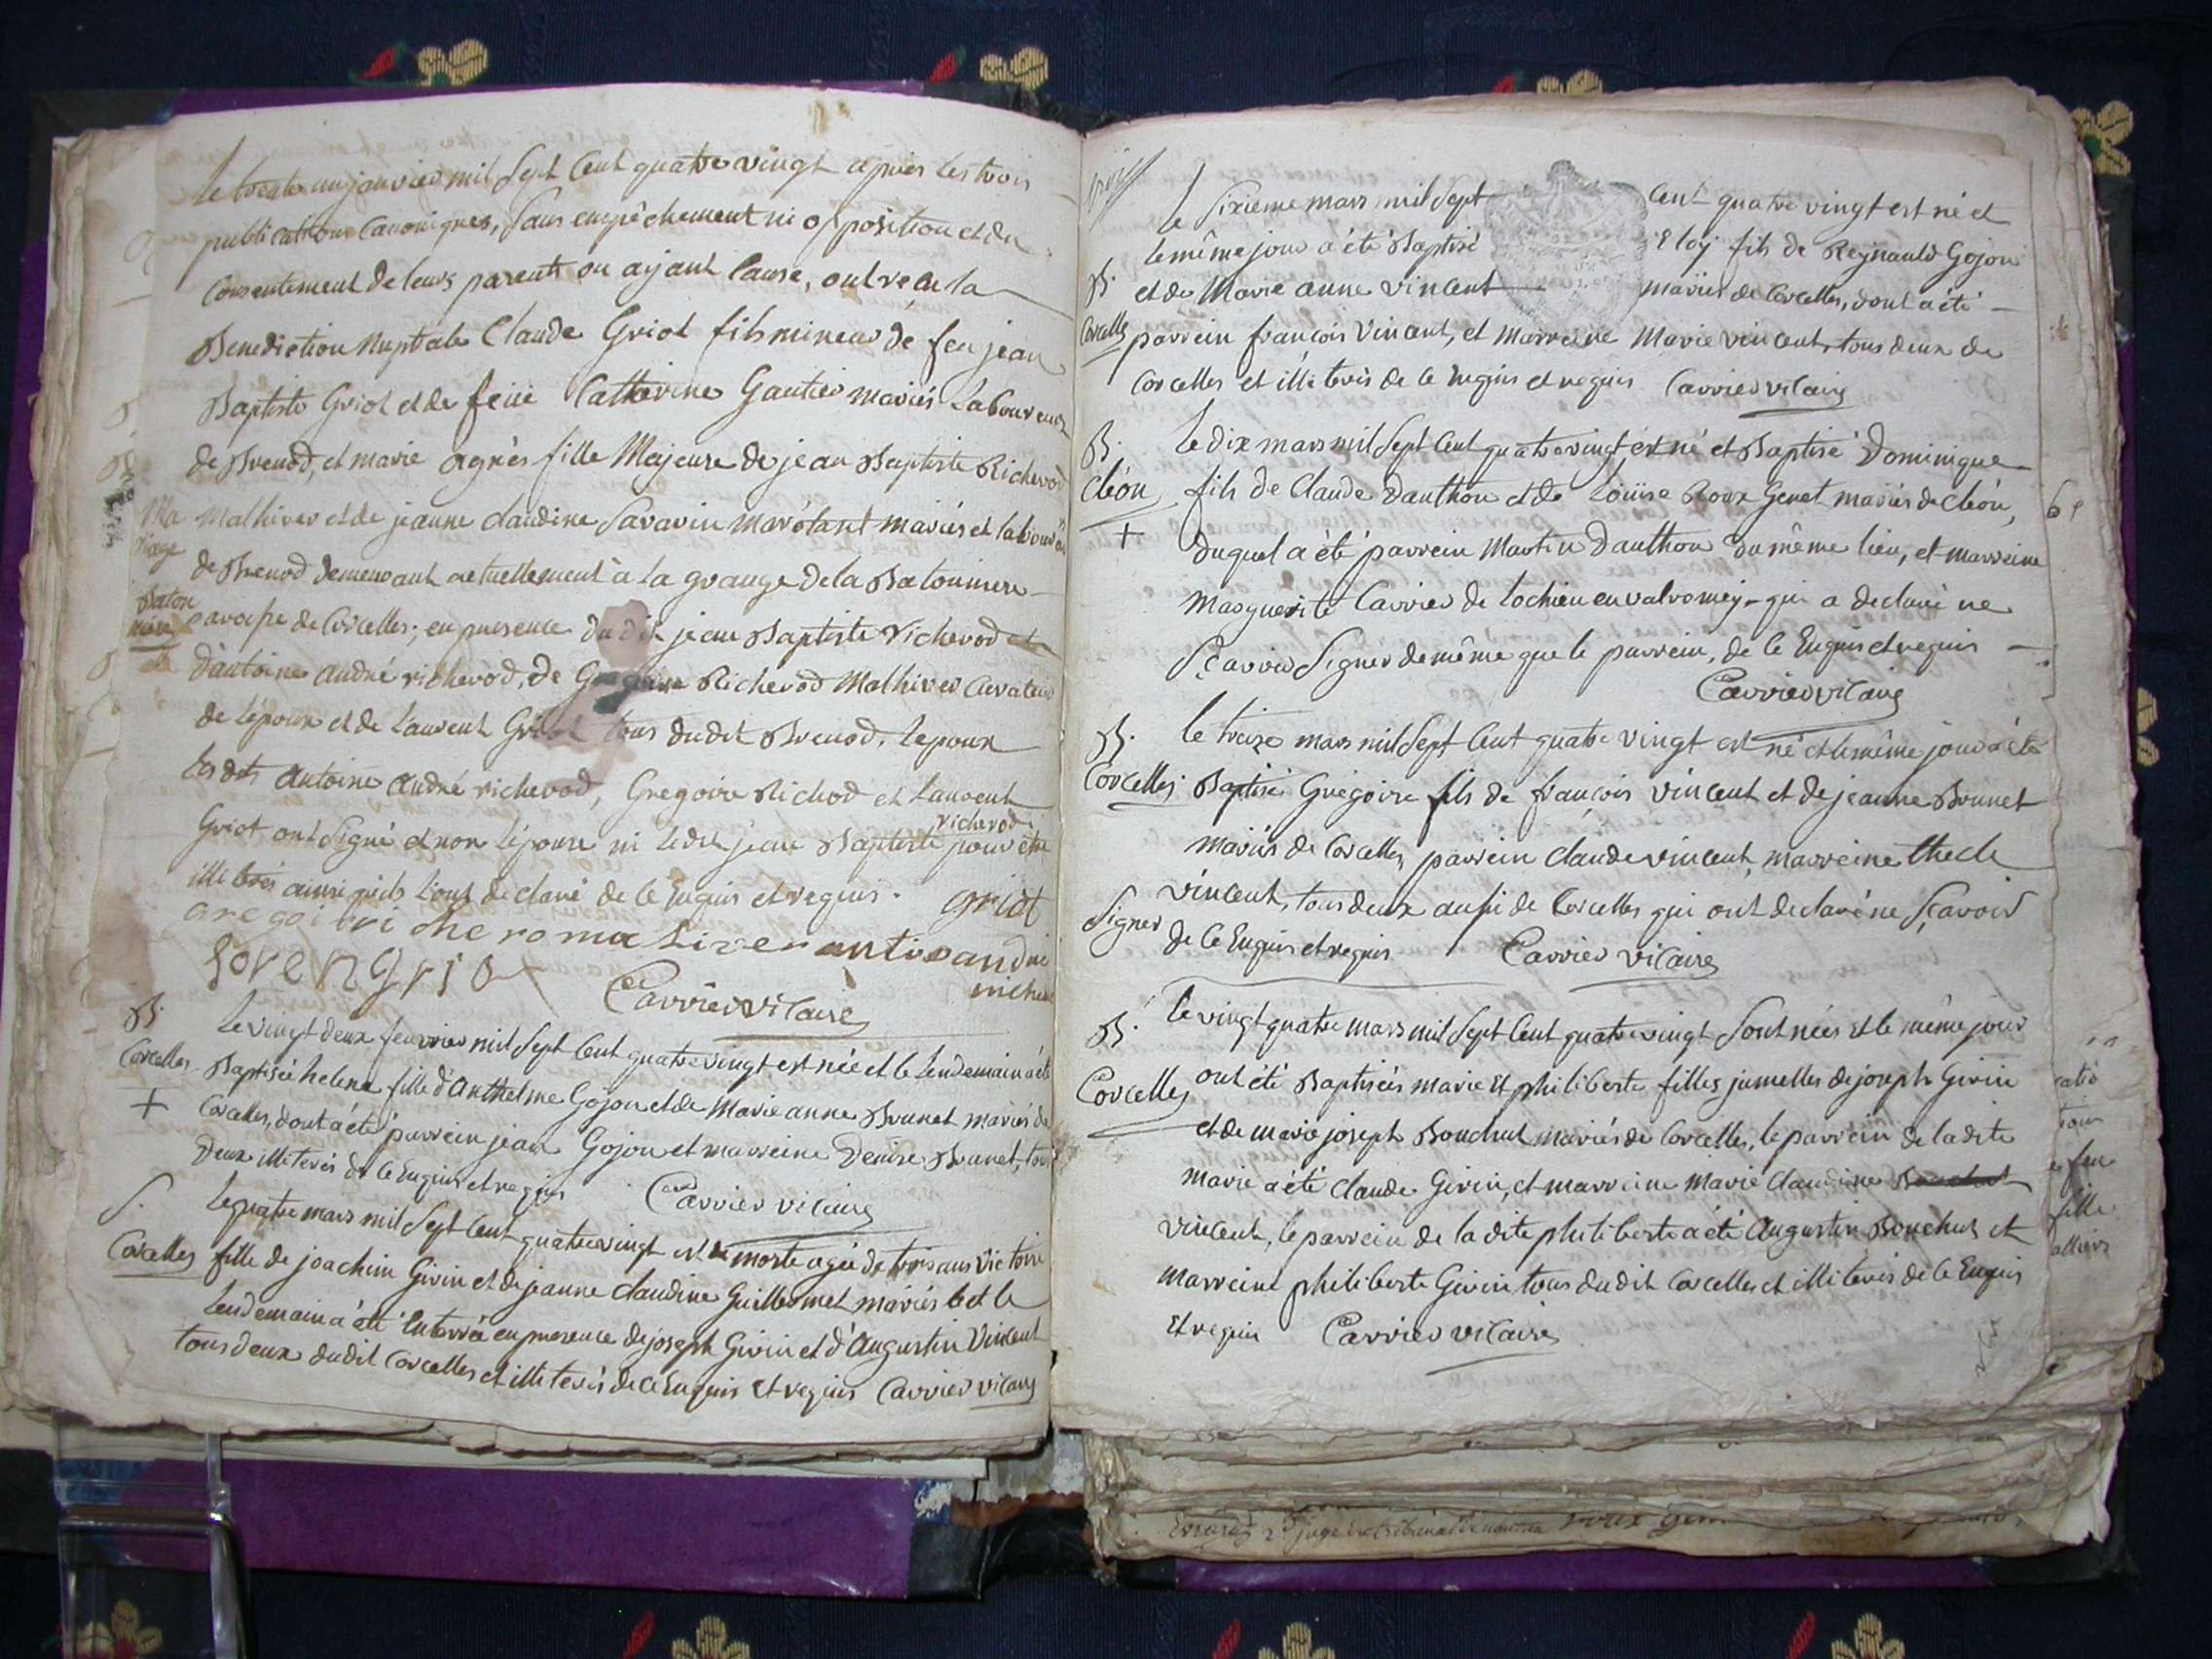 Le trente un janvier mil Sept Cent quatre vingt après les trois
publications Canoniques, Sans empêchement ni opposition et du
Consentement de leurs parents ou ayant Cause, ont reçu la
Benediction Nuptiale Claude Griot fils mineur de feu jean
Baptiste Griot et de feüe Catherine Gautier mariés Laboureurs
de Brenod, et marie agnès fille Majeure de jean Baptiste Richerod
Ma
riage
Mathiver et de jeanne claudine Savarin mariés et laboureurs
de Brenod demeurant actuellement à la grange de la Batonniere
Baton
niere
paroisse de Corcelles; en presence du dit jean Baptiste Richerod et
d'antoine andré richerod, de Gregoire Richerod Mathiver Curateur
de l'époux et de Laurent Griot tous dudit Brenod. Lepoux
Lesdts Antoine André richerod, Gregoire Richod et Laurent
Griot ont Signé et non l'épouse ni ledit jean Baptiste richerod pour être
illiterés ainsi qu'ils l'ont declaré de Ce Enquis et requis. griot
gregoi ri che ro ma ti ver anti o andri
loren griot
richer
Carrier vicaire
B.
Corcelles
+
Le vingt deux feuvrier mil Sept Cent quatre vingt est née et le Lendemain a été
Baptisée helene fille d'Anthelme Gojon et de Marie anne Brunet mariés de
Corcelles, dont a été parrein jean Gojon et marreine Denise Brunet, tous
Deux illiterés de Ce Enquis et requis Carrier vicaire
S.
Corcelles
Le quatre mars mil Sept Cent quatre vingt est morte agée de trois ans Victoire
fille de joachim Girin et de jeanne claudine Guillermet mariés et le
Lendemain a été Enterrée en presence de joseph Girin et d'Augustin Vincent
tous deux dudit Corcelles et illiterés de Ce Enquis Et requis Carrier vicaire
Le Sixieme mars mil Sept Cent quatre vingt est né et
le même jour a été Baptisé Eloy fils de Reynauld Gojon
B.
Corcelles
et de Marie anne Vincent mariés de Corcelles, dont a été
parrein françois Vincent, et Marreine Marie vincent, tous deux de
Corcelles et illiterés de Ce Enquis et requis Carrier vicaire
B.
Cléon
+
Le dix mars mil Sept Cent quatre vingt, est né et Baptisé Dominique
fils de Claude Dauthon et de Loüise Roux Genet mariés de cléon,
Duquel a été parrein Martin Dauthon du même lieu, et marreine
Marguerite Carrier de Lochieu en valromey qui a declaré ne
Sçavoir Signer de même que le parrein, de Ce Enquis et requis
Carrier vicaire
B.
Corcelles
Le treize mars mil Sept Cent quatre vingt est né et le même jour a été
Baptisé Grégoire fils de françois Vincent et de jeanne Brunet
mariés de Corcelles, parrein claude vincent, marreine thecle
Vincent, tous deux aussi de Corcelles qui ont declaré ne Sçavoir
Signer de Ce Enquis et requis Carrier vicaire
B.
Corcelles
Le vingt quatre mars mil Sept Cent quatre vingt Sont nées et le même jour
ont été Baptisées marie Et philiberte filles jumelles de joseph Girin
et de marie joseph Bouchut mariés de Corcelles, le parrein de ladite
marie a été claude Girin, et marreine marie claudine Bouchut
Vincent, le parrein de la dite philiberte a été Augustin Bouchut et
marreine philiberte Girin tous dudit Corcelles et illiterés de Ce Enquis
Et requis Carrier vicaire
feu
fille